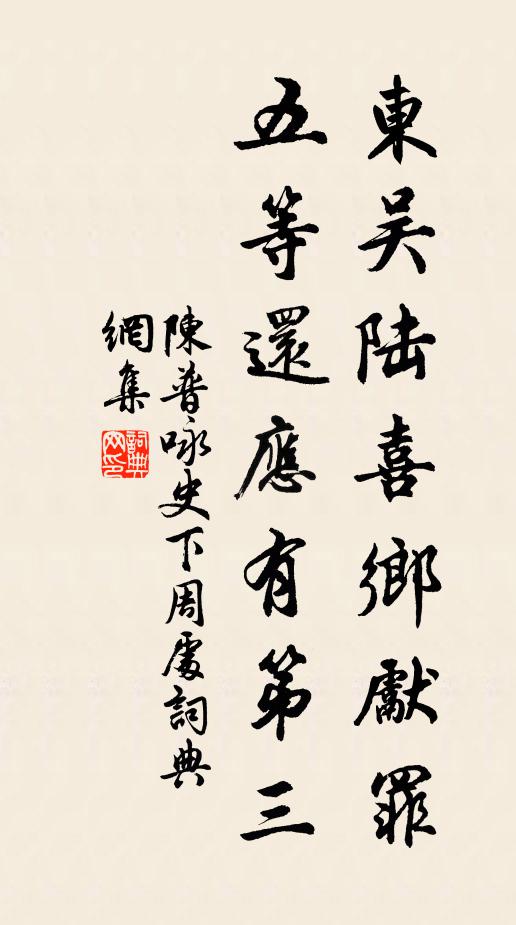 東吴陸喜鄉獻罪
五等還應有第三
陳普咏史下周處詞典
網集
詞典網印